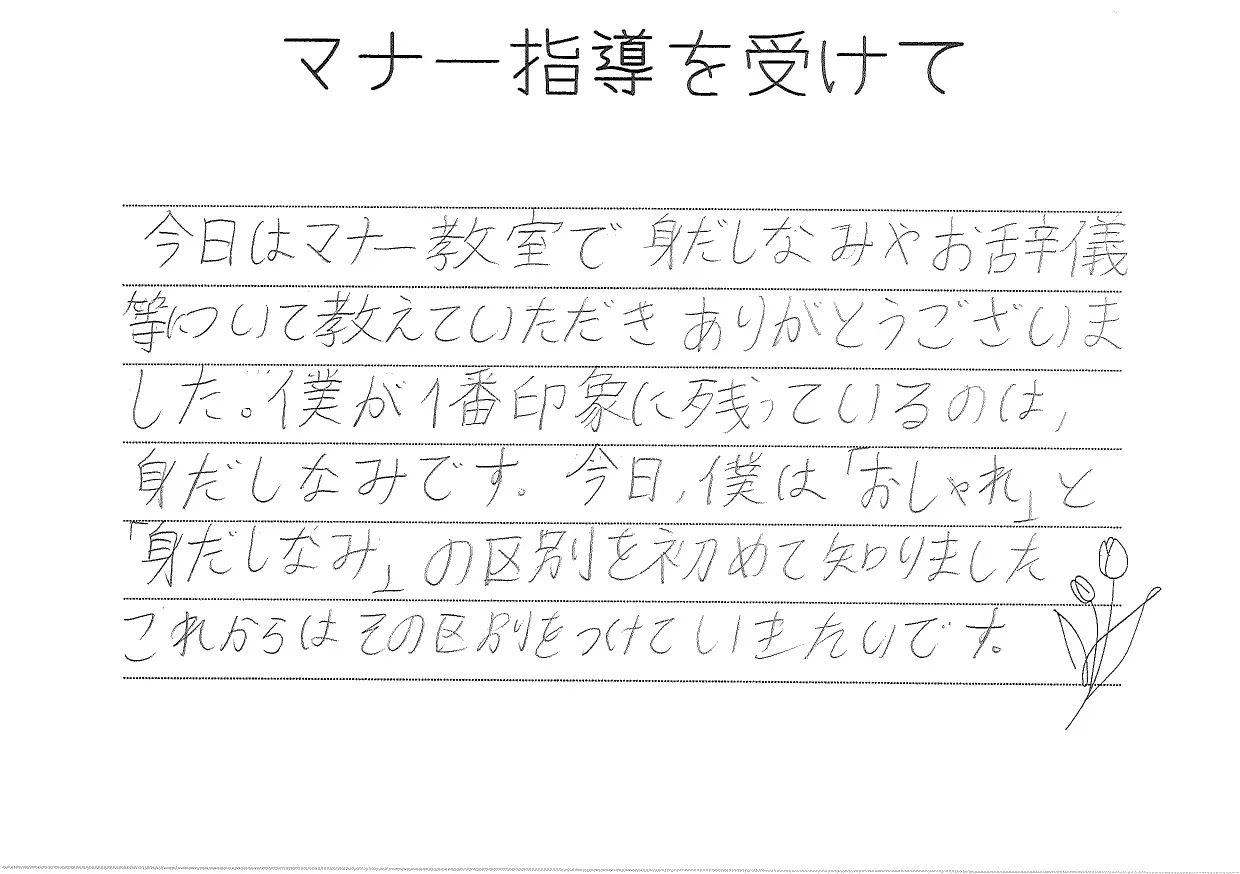 マナー指導を受けて
今日はマナー教室で身だしなみやお辞儀
等について教えていただきありがとうございま
した。僕が1番印象に残っているのは,
身だしなみです。今日,僕は「おしゃれ」と
「身だしなみ」の区別を初めて知りました
これからはその区別をつけていきたいです。